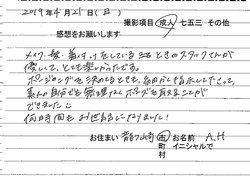 2019年4月21日(日)
撮影項目 成人 七五三 その他
感想をお願いします
メイク、髪、着付けをしているときのスタッフさんが
優しくて、とても楽しかったです。
ポージングを決めるときも、細かく指示して下さって、
素人の自分でも無理なくポーズを取ることが
できました
何時間もお世話になりました!
お住まい 龍ケ崎 市 お名前 A.H
町 イニシャルで
村